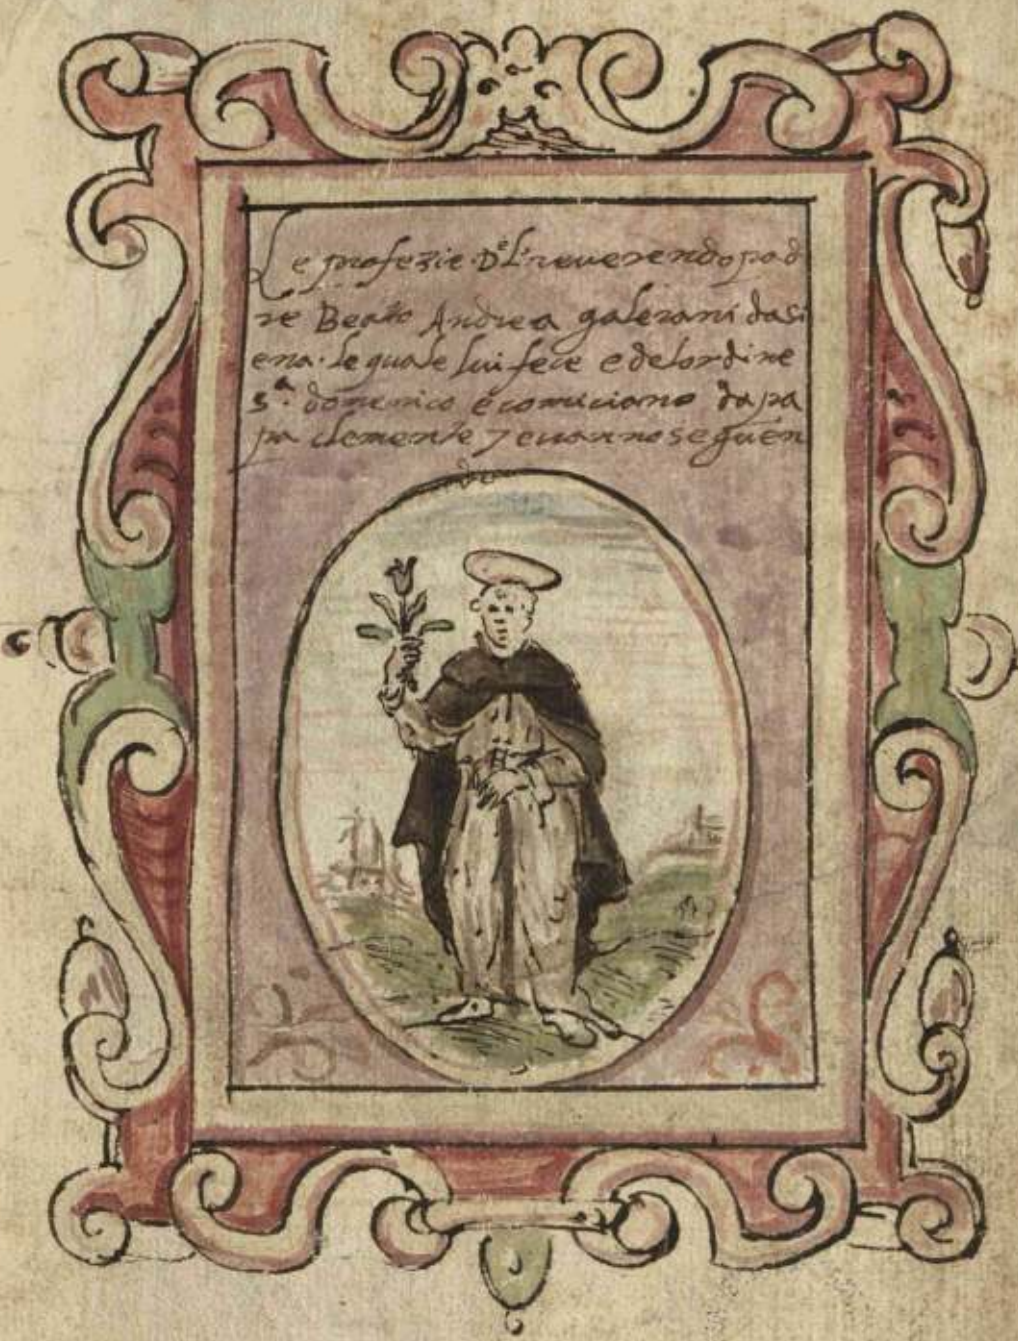 Le profezie Del reverendo pad
re Beato Andrea galerani dasi
ena. le quale lui fece e delordine
sa. domenico e comiciano da pa
pa clemente 7 e vanno seguen
do